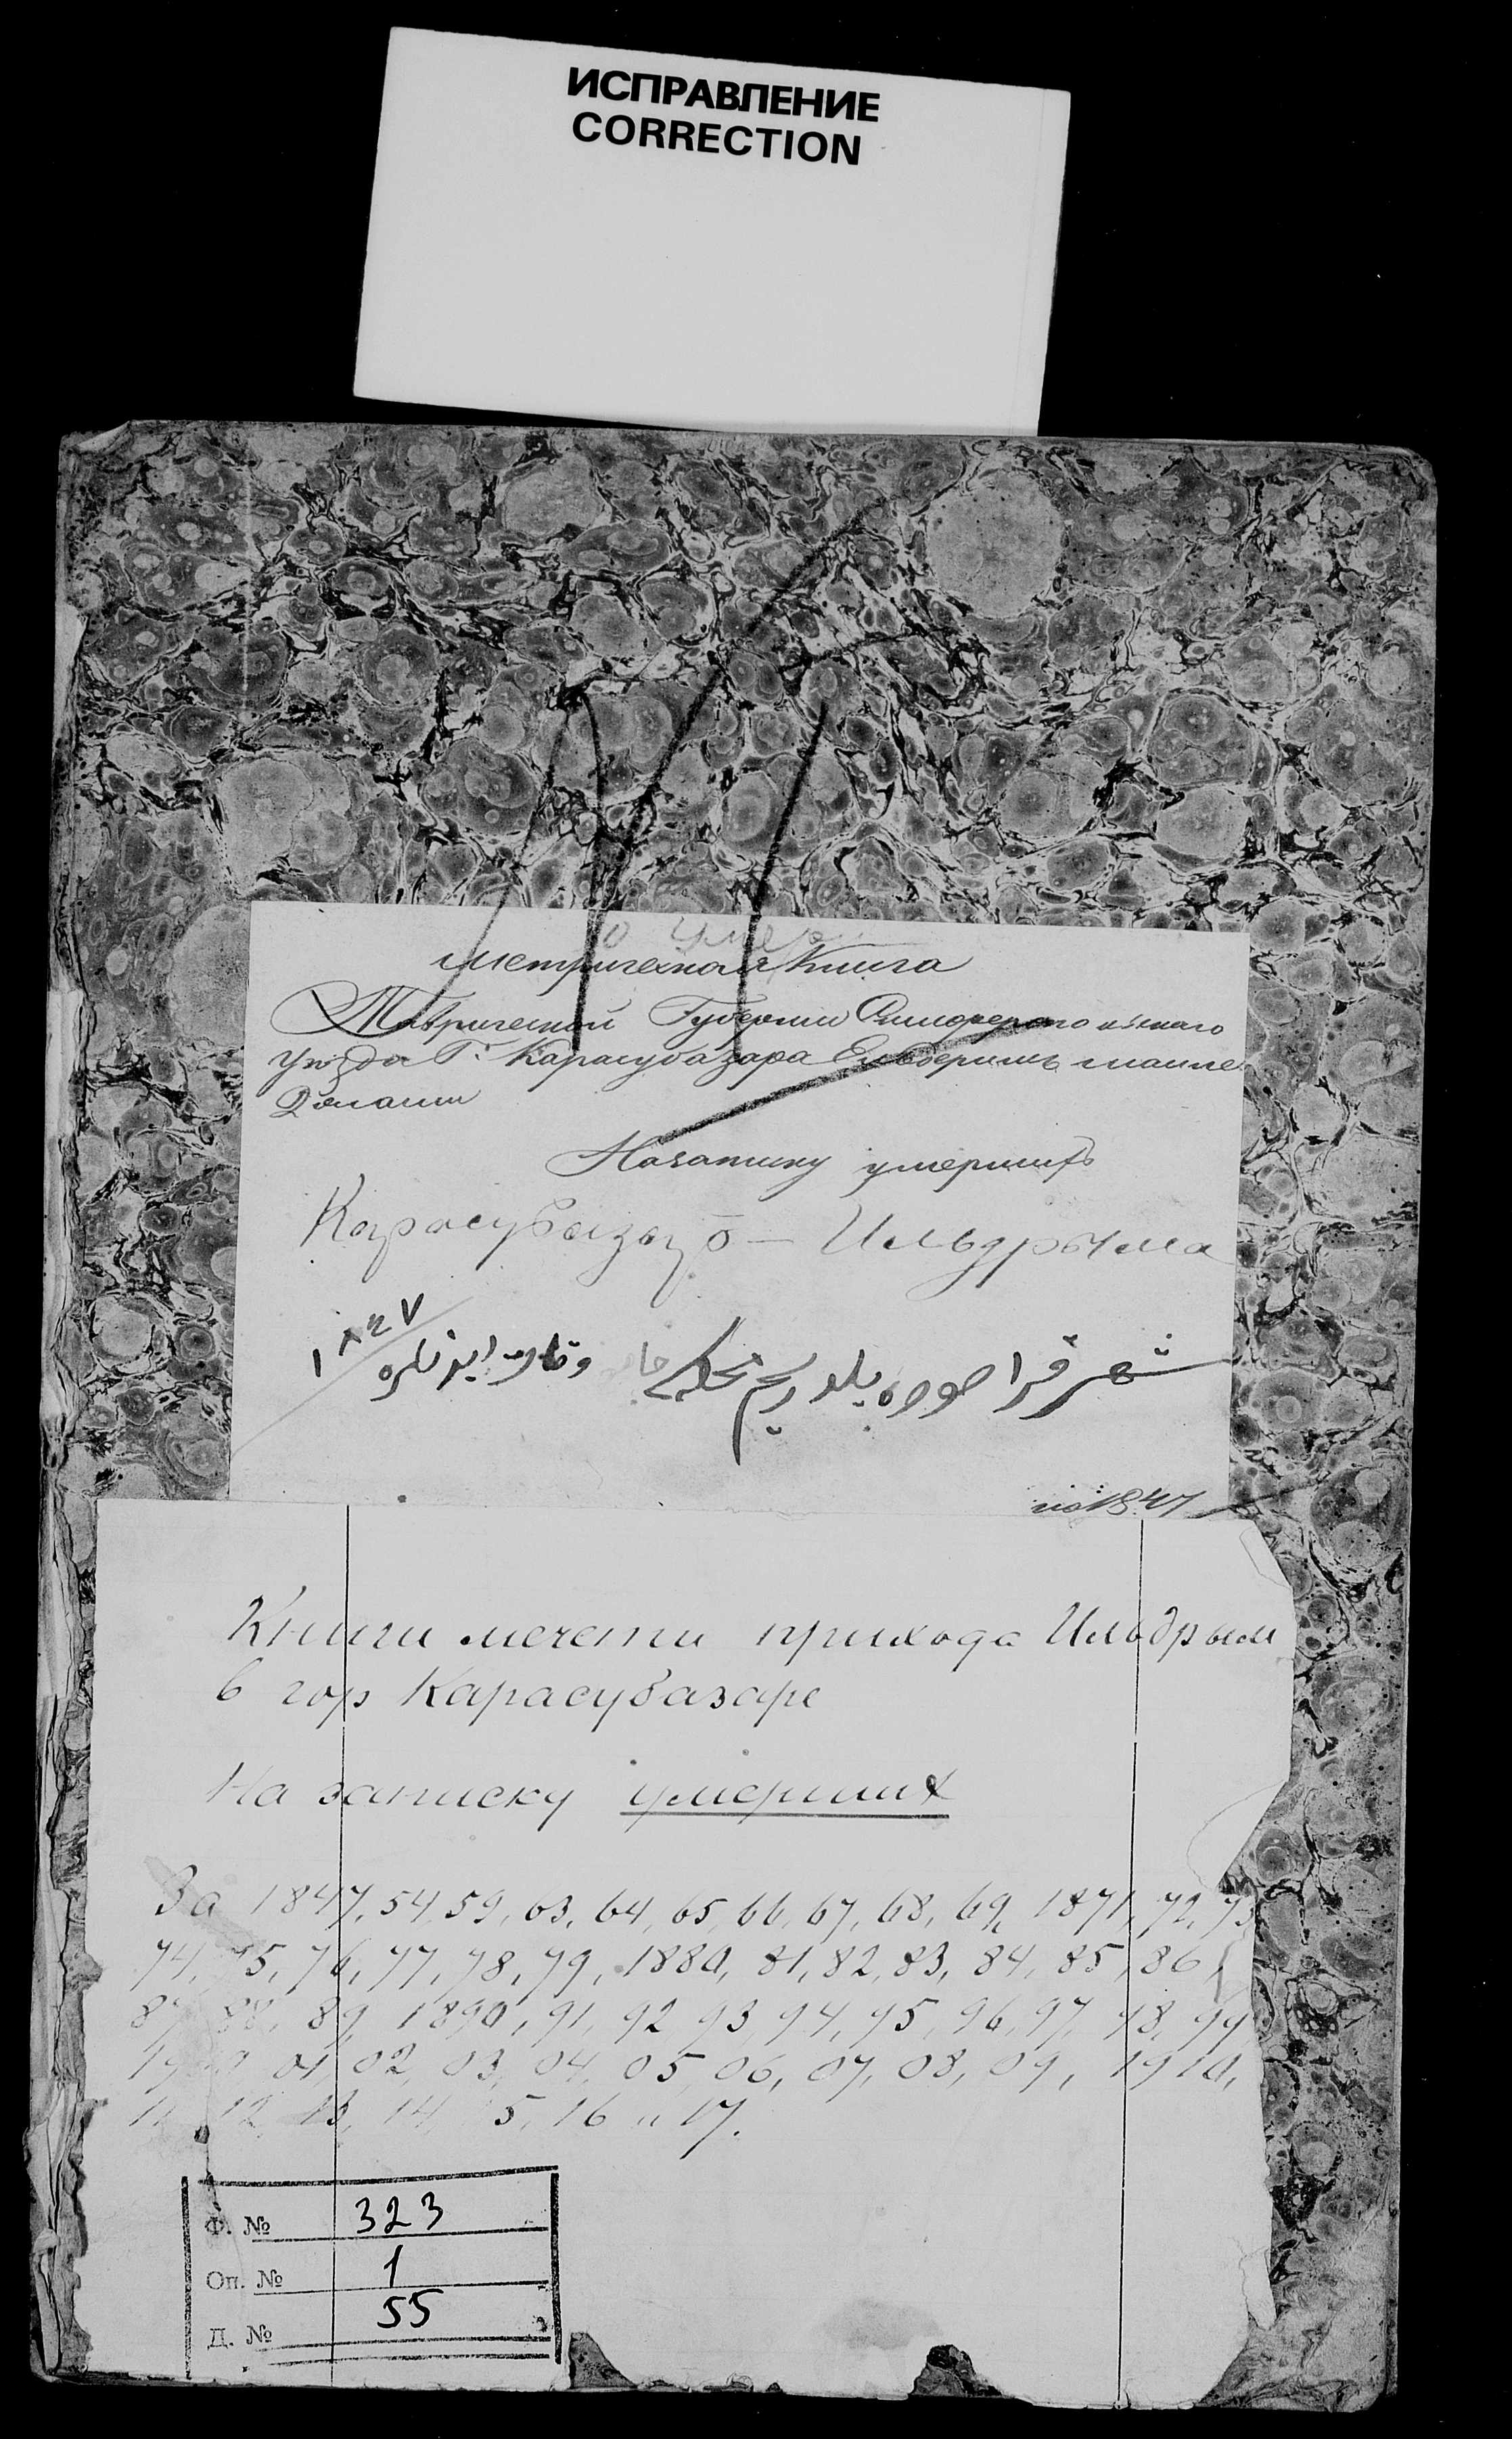 ИСПРАВЛЕНИЕ
CORRECTION
о умер
Метрическая Книга
Таврической Губернии
Уезда Г. Карасубазара
На записку умерших
Карасубазар – Ильдрыма
شهر قرا صو
١٨٤٧
1847
Книги мечети прихода Ильдрым
в гор Карасубазаре
На записку умерших
За 1847, 54, 59, 63, 64, 65, 66, 67, 68, 69, 1871, 72, 73
74, 75, 76, 77, 78, 79, 1880, 81, 82, 83, 84, 85, 86,
87, 88, 89, 1890, 91, 92, 93, 94, 95, 96, 97, 98, 99
01, 02, 03, 04, 05, 06, 07, 08, 09, 1910,
11, 12, 13, 14, 15, 16 и 17.
Ф. № 323
Оп. № 1
Д. № 55